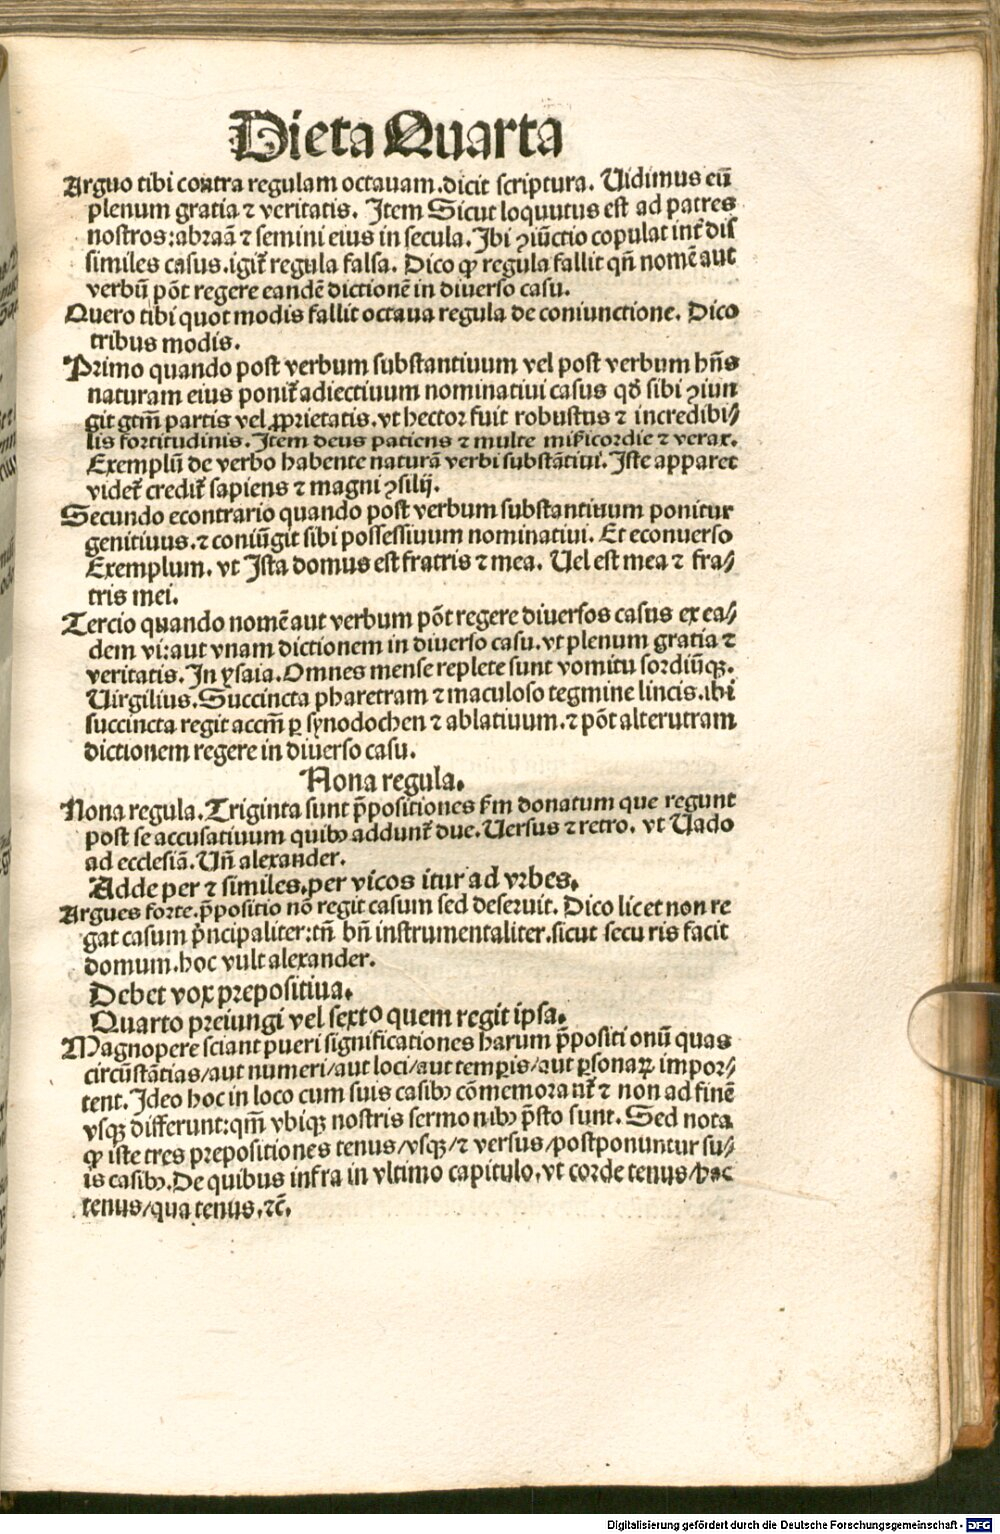 Dieta Quarta
Arguo tibi contra regulam octauam.dicit scriptura. Uidimus eū
plenum gratia ⁊ veritatis. Item Sicut loquutus est ad patres
nostros:abraā ⁊ semini eius in secula.Ibi ꝯiūctio copulat int̄ dis
similes casus.igit̄ regula falsa. Dico ꝙ regula fallit qn̄ nomē aut
verbū pōt regere eandē dictionē in diuerso casu.
Quero tibi quot modis fallit octaua regula de coniunctione. Dico
tribus modis.
Primo quando post verbum substantiuum vel post verbum hn̄s
naturam eius ponit̄ adiectiuum nominatiui casus qd̄ sibi ꝯiun
git gtm̄ partis vel ꝓprietatis.vt hector fuit robustus ⁊ incredibi⸗
lis fortitudinis.Item deus patiens ⁊ multe mīcordie ⁊ verax.
Exemplū de verbo habente naturā verbi substātiui.Iste apparet
videt̄ credit̄ sapiens ⁊ magni ꝯsilij.
Secundo econtrario quando post verbum substantiuum ponitur
genitiuus.⁊ coniūgit sibi possessiuum nominatiui. Et econuerso
Exemplum. vt Ista domus est fratris ⁊ mea. Uel est mea ⁊ fra⸗
tris mei.
Tercio quando nomē aut verbum pōt regere diuersos casus ex ea⸗
dem vi:aut vnam dictionem in diuerso casu.vt plenum gratia ⁊
veritatis. In ysaia.Omnes mense replete sunt vomitu sordiūqꝫ.
Uirgilius.Succincta pharetram ⁊ maculoso tegmine lincis.ibi
succincta regit accm̄ ꝑ synodochen ⁊ ablatiuum.⁊ pōt alterutram
dictionem regere in diuerso casu.
Nona regula.
Nona regula.Triginta sunt p̄positiones fm̄ donatum que regunt
post se accusatiuum quibꝰ addunt̄ due.Uersus ⁊ retro. vt Uado
ad ecclesiā.Un̄ alexander.
Adde per ⁊ similes.per vicos itur ad vrbes.
Argues forte.p̄positio nō regit casum sed deseruit. Dico licet non re
gat casum p̄ncipaliter:tn̄ bn̄ instrumentaliter.sicut secu ris facit
domum.hoc vult alexander.
Debet vox prepositiua.
Quarto preiungi vel sexto quem regit ipsa.
Magnopere sciant pueri significationes harum p̄positi onū quas
circūstātias/aut numeri/aut loci/aut temꝑis/aut ꝑsonaꝝ impor⸗
tent. Ideo hoc in loco cum suis casibꝰ cōmemorant̄ ⁊ non ad finē
vsqꝫ differunt:qm̄ vbiqꝫ nostris sermonibꝰ p̄sto sunt. Sed nota
ꝙ iste tres prepositiones tenus/vsqꝫ/⁊ versus/postponuntur su⸗
is casibꝰ.De quibus infra in vltimo capitulo.vt corde tenus/hac
tenus/qua tenus.⁊c̄.
Digitalisierung gefördert durch die Deutsche Forschungsgemeinschaft - DFG